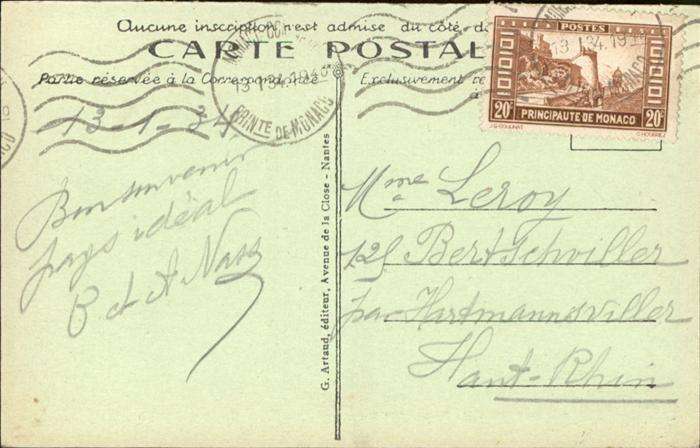 Aucune inscription n'est admise du côté de
CARTE POSTAL
Partie réservée à la Correspondance
Exclusivement ré
13 1 34 1940
PRINTE DE MONACO
POSTES
13 1 34 19
20c 20c
PRINCIPAUTÉ DE MONACO
13-1-34
Bon souvenir
pays idéal
G. Artaud, éditeur, Avenue de la Close - Nantes
Mme Leroy
Bertschviller
par Hartmannsviller
Haut-Rhin